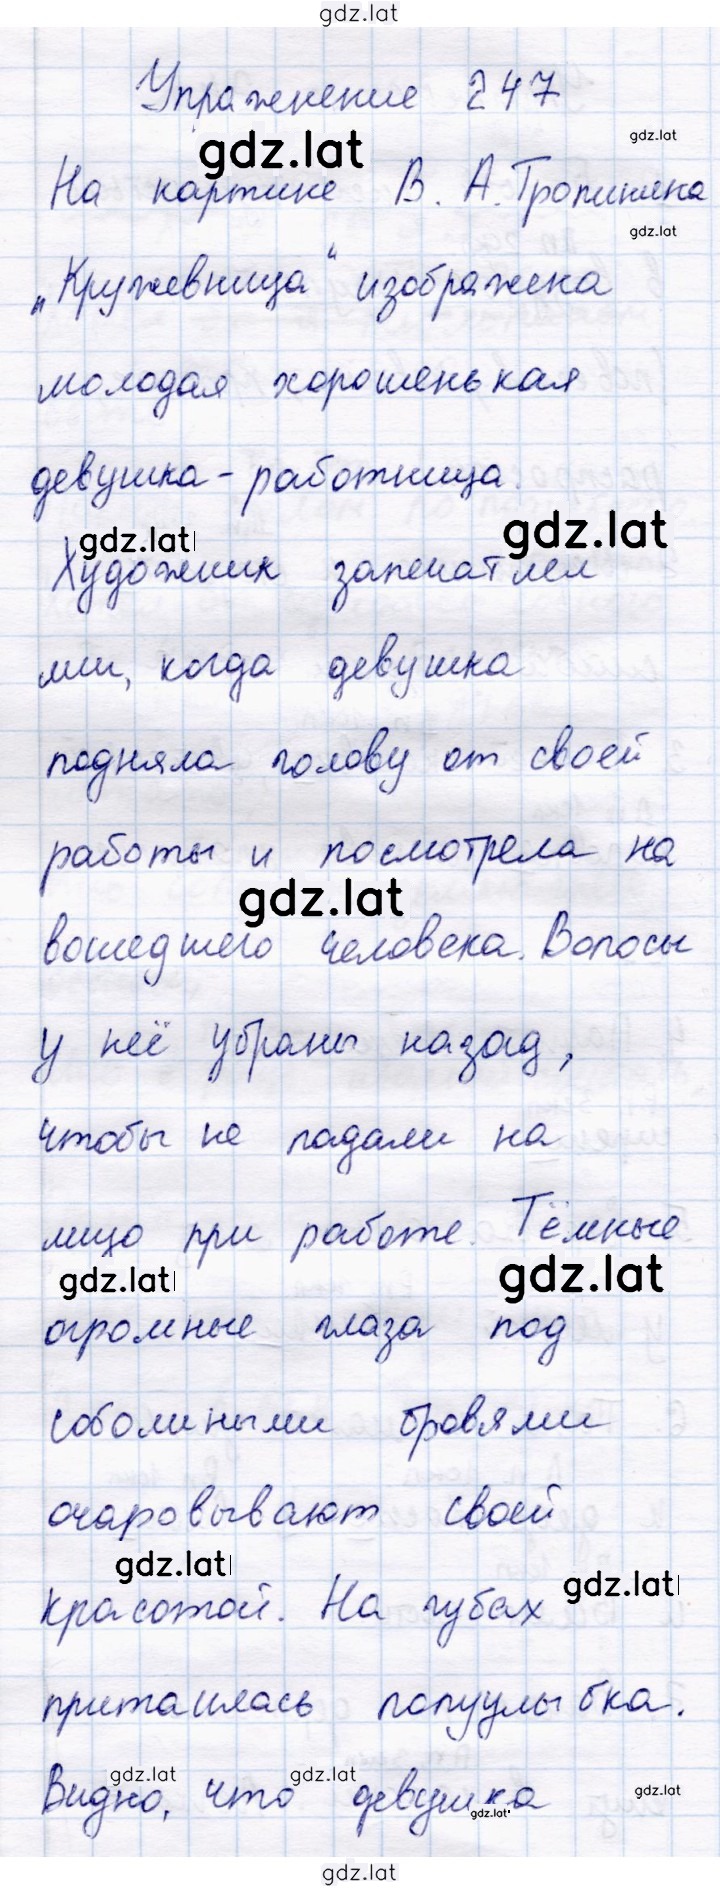 gdz.lat
Упражнение 247
gdz.lat
gdz.lat
На картине В. А. Тропинина
gdz.lat
„Кружевница“ изображена
молодая хорошенькая
девушка-работница.
gdz.lat
gdz.lat
Художник запечатлел
миг, когда девушка
подняла голову от своей
работы и посмотрела на
gdz.lat
вошедшего человека. Волосы
у неё убраны назад,
чтобы не падали на
лицо при работе. Тёмные
gdz.lat
gdz.lat
огромные глаза под
соболиными бровями
очаровывают своей
gdz.lat
gdz.lat
красотой. На губах
притаилась полуулыбка.
gdz.lat
gdz.lat
gdz.lat
Видно, что девушка
gdz.lat
gdz.lat